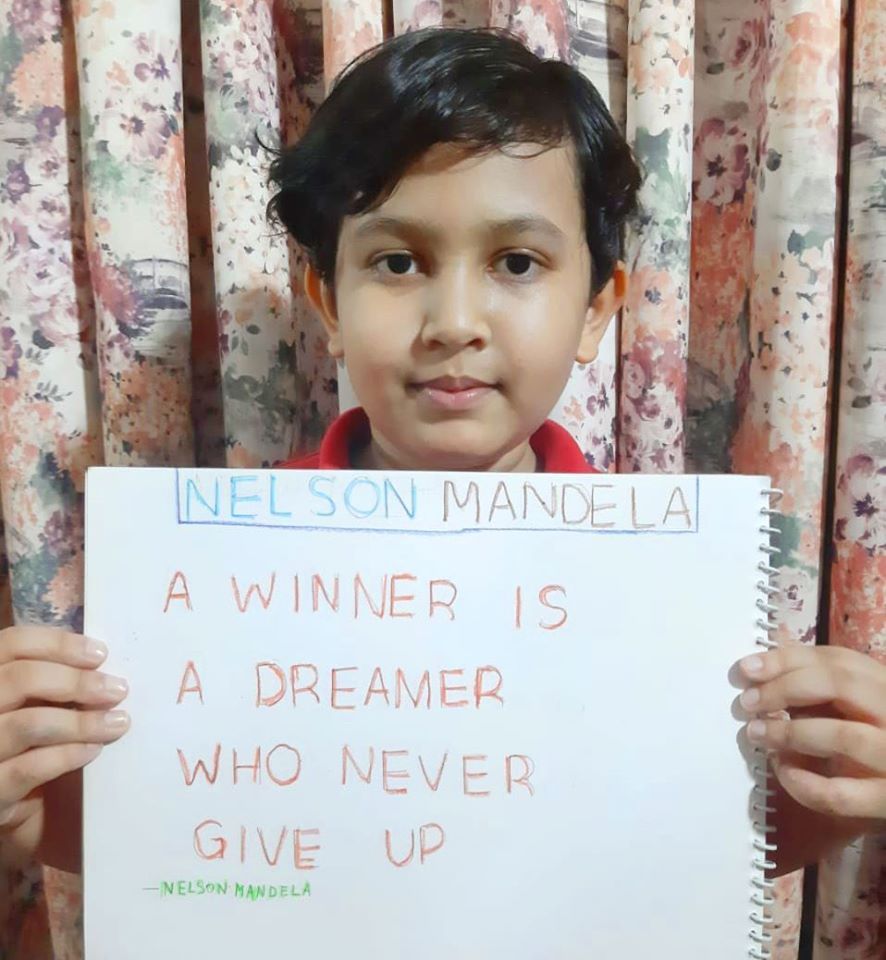 NELSON MANDELA
A WINNER IS
A DREAMER
WHO NEVER
GIVE UP
—NELSON MANDELA